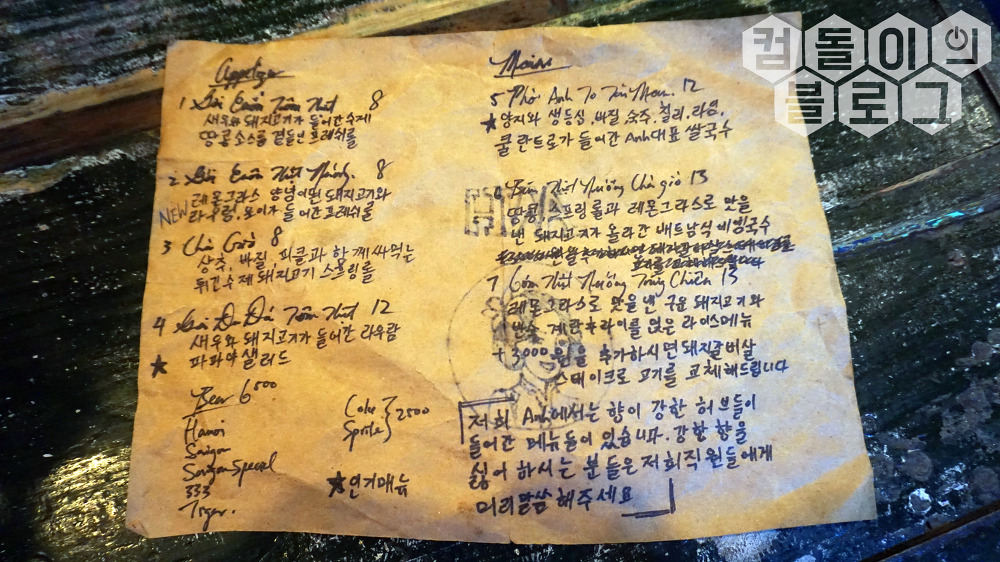 컴돌이의
블로그
Appetizer
1 Gỏi Cuốn Tôm Thịt 8
새우와 돼지고기가 들어간 수제
땅콩소스를 곁들인 프레쉬롤
2 Gỏi Cuốn Thịt Nướng. 8
NEW 레몬그라스 양념이된 돼지고기와
라우람, 오이가 들어간 프레쉬롤
3 Chả Giò 8
상추, 바질, 피클과 함께 싸먹는
튀긴 수제 돼지고기 스프링롤
4 Gỏi Đu Đủ Tôm Thịt 12
새우와 돼지고기가 들어간 라우람
★ 파파야 샐러드
Beer 6500
Hanoi
Saigon
Saigon Special
333
Tiger.
Coke
Sprite } 2500
★인기메뉴
Mains
5 Phở Anh 12
★ 양지와 생등심, 바질, 숙주, 칠리, 라임,
쿨란트로가 들어간 Anh대표 쌀국수
6 Bún Thịt Nướng Chả giò 13
땅콩, 스프링롤과 레몬그라스로 맛을
낸 돼지고기가 올라간 베트남식 비빔국수
7 Cơm Thịt Nướng Trứng Chiên 13
레몬그라스로 맛을 낸 구운 돼지고기와
반숙 계란후라이를 얹은 라이스메뉴
+3000원을 추가하시면 돼지갈비살
스테이크로 고기를 교체해드립니다
저희 Anh에서는 향이 강한 허브들이
들어간 메뉴들이 있습니다. 강한 향을
싫어 하시는 분들은 저희직원들에게
미리말씀해주세요